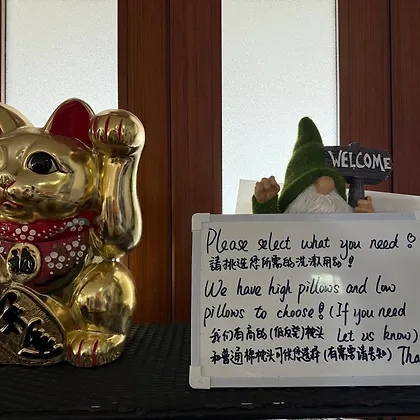 WELCOME
Please select what you need!
請挑選您所需的洗漱用品!
We have high pillows and Low
pillows to choose! (If you need
我们有高的(低反荞)枕头 Let us know)
和普通棉枕头可供您选择(有需要请告知) Tha